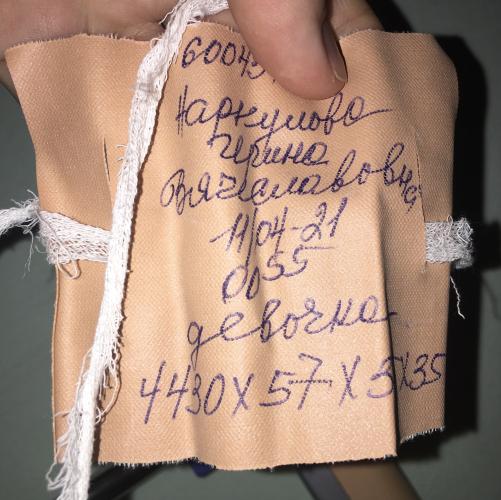 Наркулова
Ирина
Вячеславовна
11/04-21
00 55
девочка
4430 X 57 X 5X35